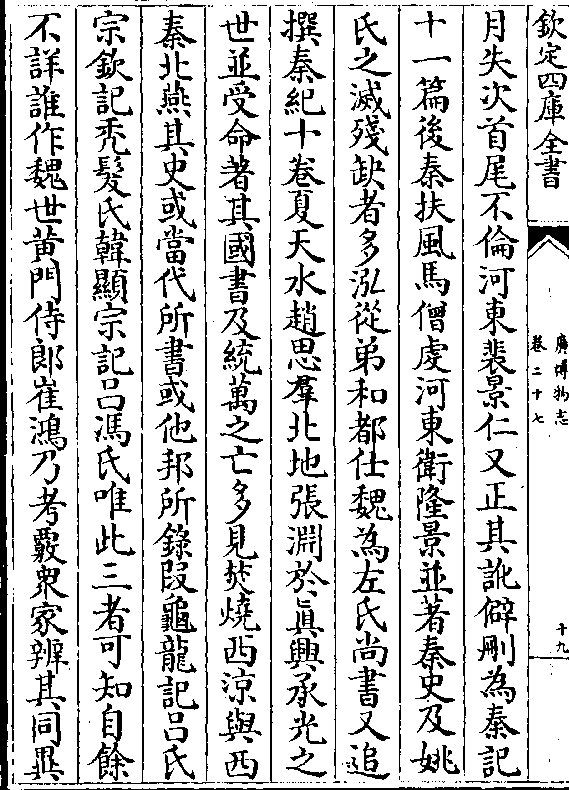 欽定四庫全書
廣博物志
卷二十七
十九
月失次首尾不倫河東裴景仁又正其訛僻刪為秦記
十一篇後秦扶風馬僧虔河東衛隆景並著秦史及姚
氏之滅殘缺者多泓從弟和都仕魏為左氏尚書又追
撰秦紀十卷夏天水趙思羣北地張淵於眞興承光之
世並受命著其國書及統萬之亡多見焚燒西涼與西
秦北燕其史或當代所書或他邦所錄叚龜龍記吕氏
宗欽記秃髮氏韓顯宗記吕馮氏唯此三者可知自餘
不詳誰作魏世黄門侍郎崔鴻乃考覈衆家辨其同異